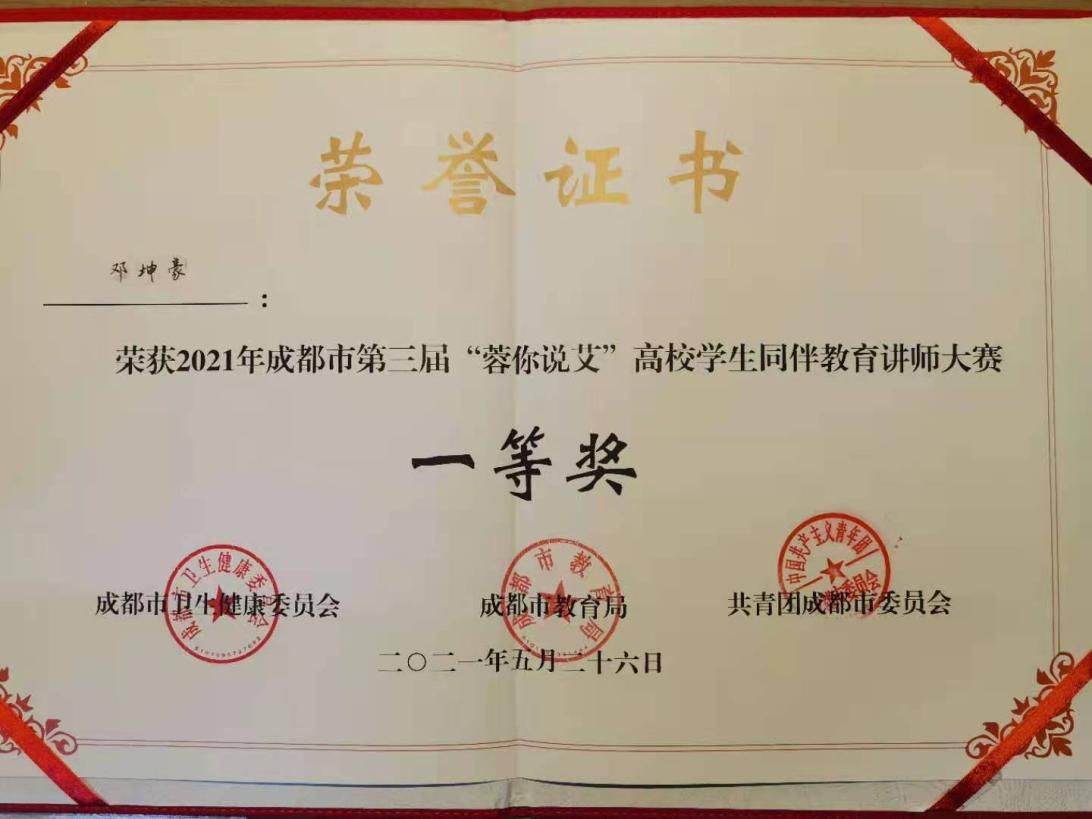 荣誉证书
邓坤豪
：
荣获2021年成都市第三届“蓉你说艾”高校学生同伴教育讲师大赛
一等奖
成都市卫生健康委员会
成都市教育局
共青团成都市委员会
成都市卫生健康委员会
成都市教育局
中国共产主义青年团
二〇二一年五月二十六日